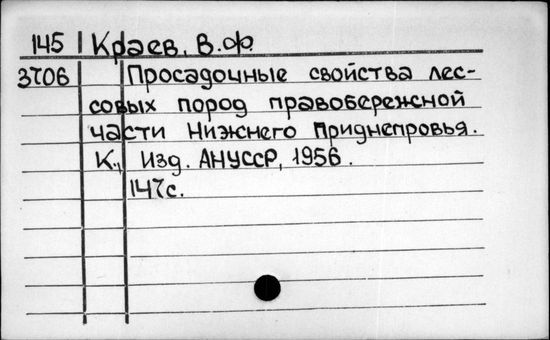 145 Краев. В.Ф
3706 Просадочные свойства лес-
совых пород правобережной
части Нижнего Приднепровья.
К., Изд. АНУССР, 1956.
147с.